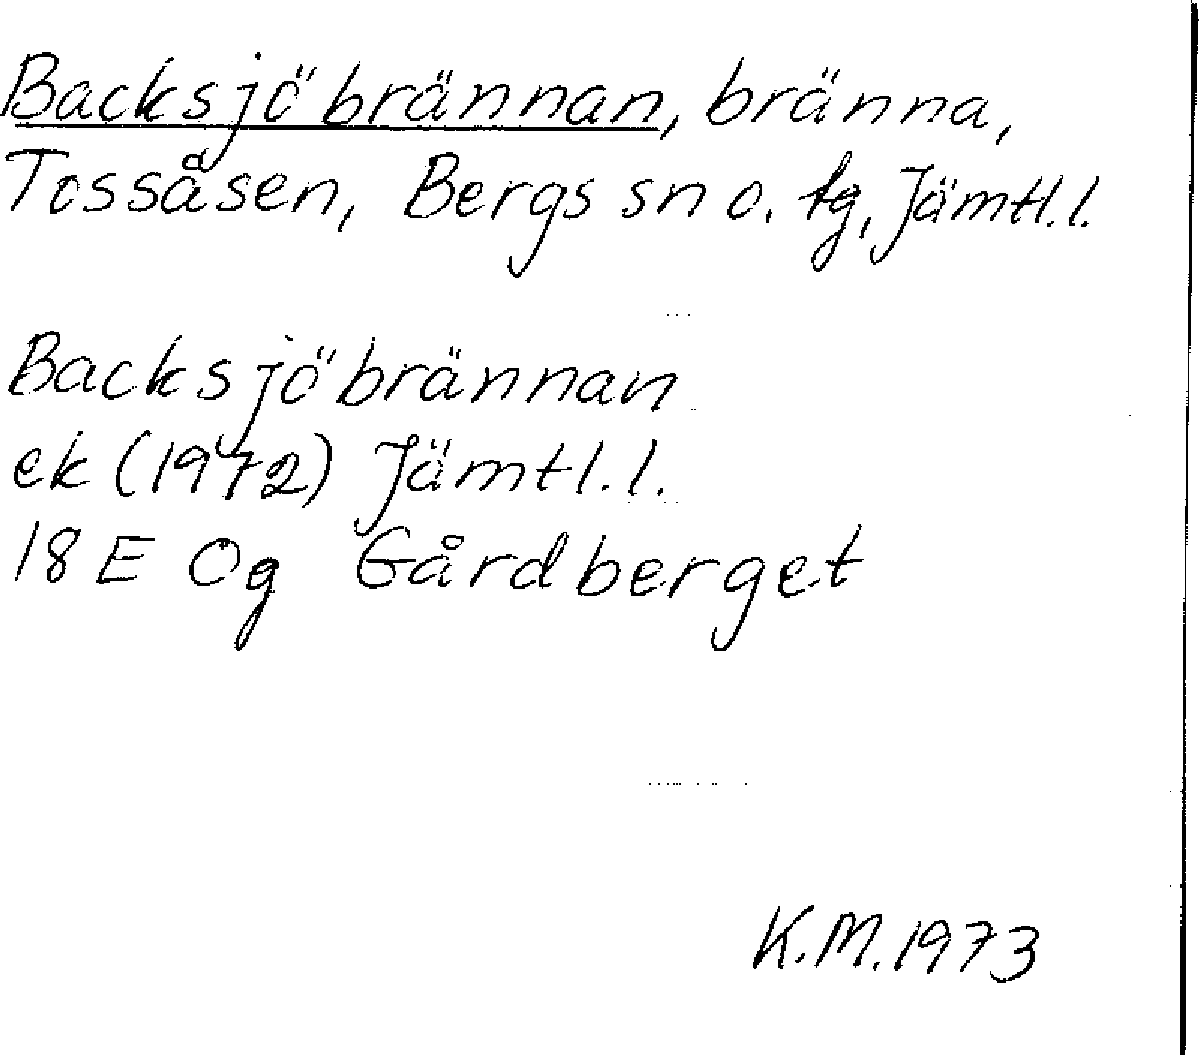 Backsjöbrännan, bränna,
Tossåsen, Bergs sn o. tg, Jämtl. l.
Backsjöbrännan
ek (1972) Jämtl. l.
18 E 0g Gårdberget
K.M. 1973